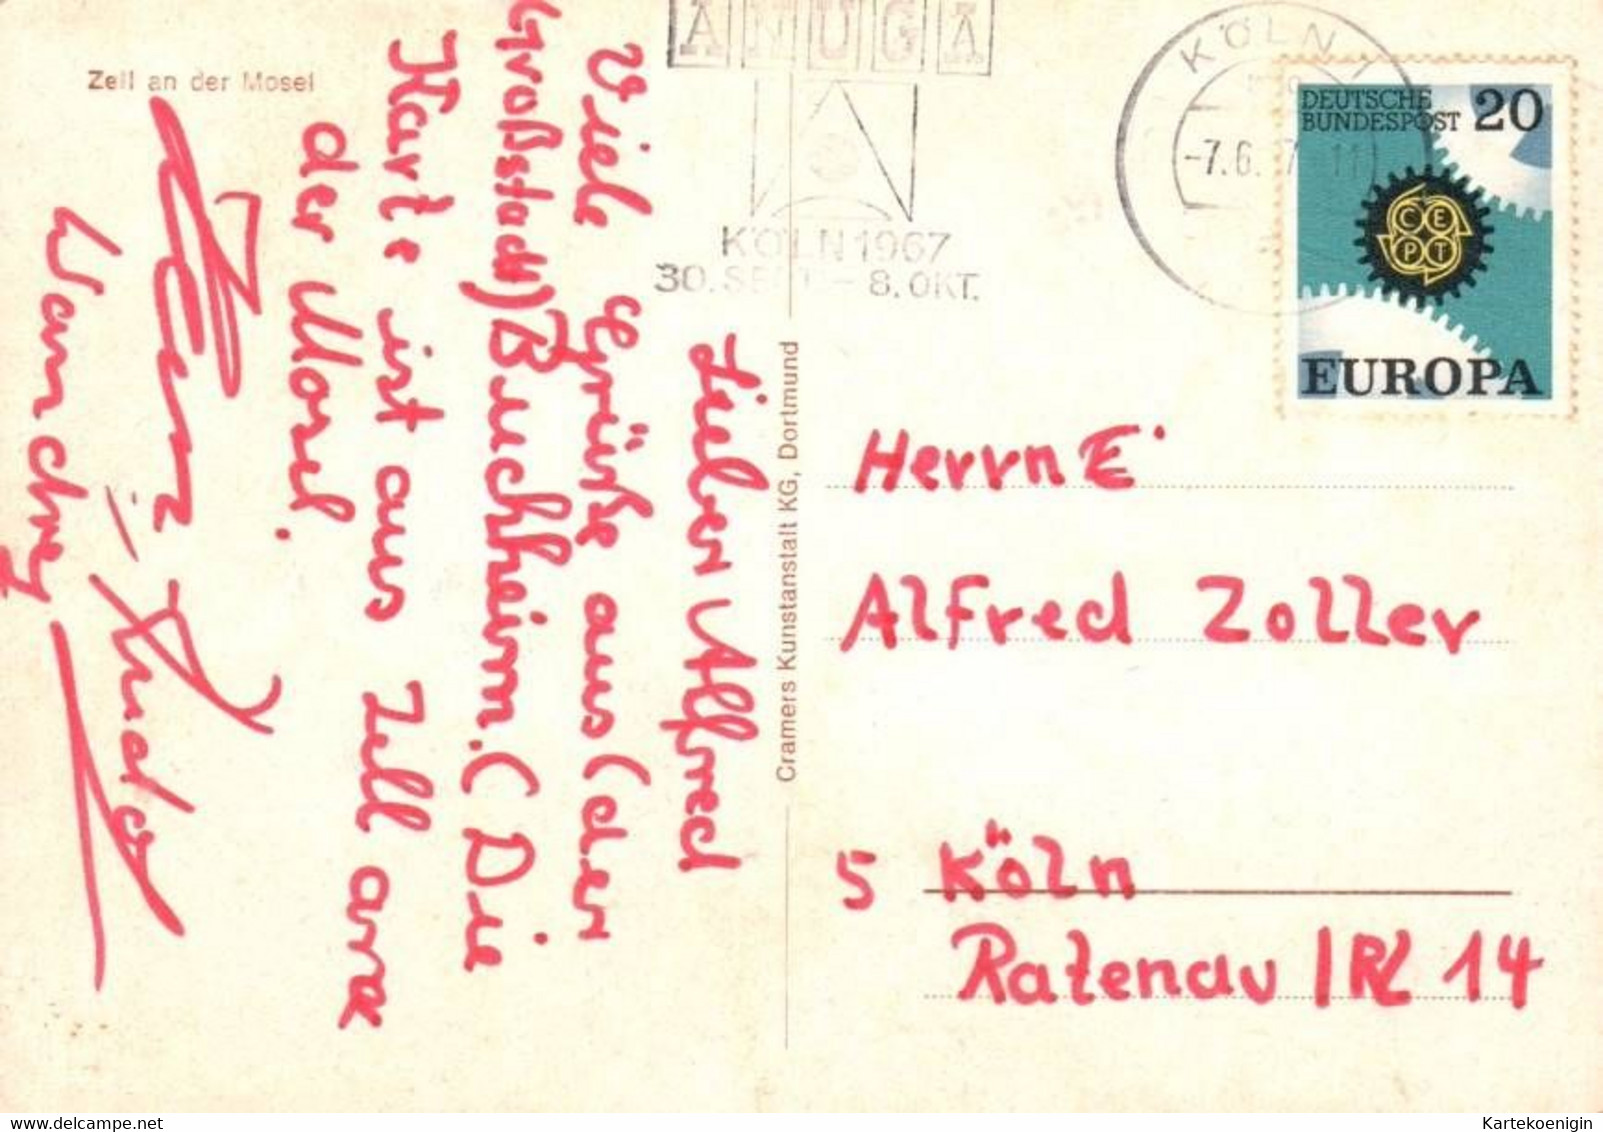 Zell an der Mosel
Lieber Alfred
Viele Grüße aus (der
Großstadt) Buchheim. (Die
Karte ist aus Zell an
der Mosel.
Cramers Kunstanstalt KG, Dortmund
ANUGA
KÖLN 1967
30. SEPT. - 8. OKT.
KÖLN
-7.6. 7 11
DEUTSCHE
BUNDESPOST 20
CEPT
EUROPA
Herrn E
Alfred Zoller
5 Köln
Ratenau
14
Kartekoenigin